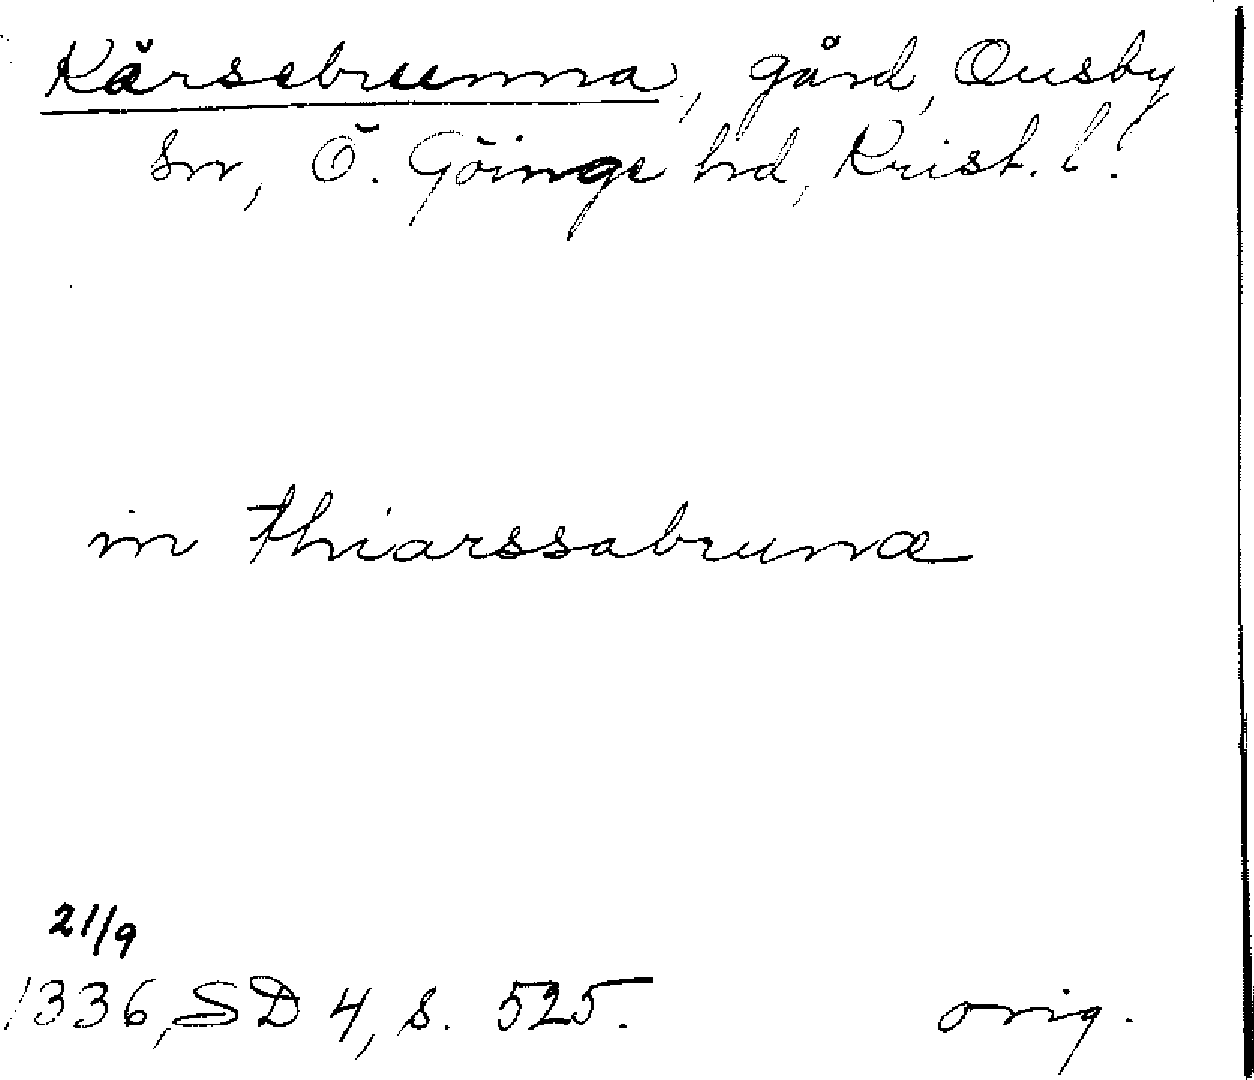 Kärsebrunna, gård, Ousby
sn, Ö. Göinge hd, Krist. l.
in thiarssabrunæ
21/9
1336, SD 4, s. 525. orig.